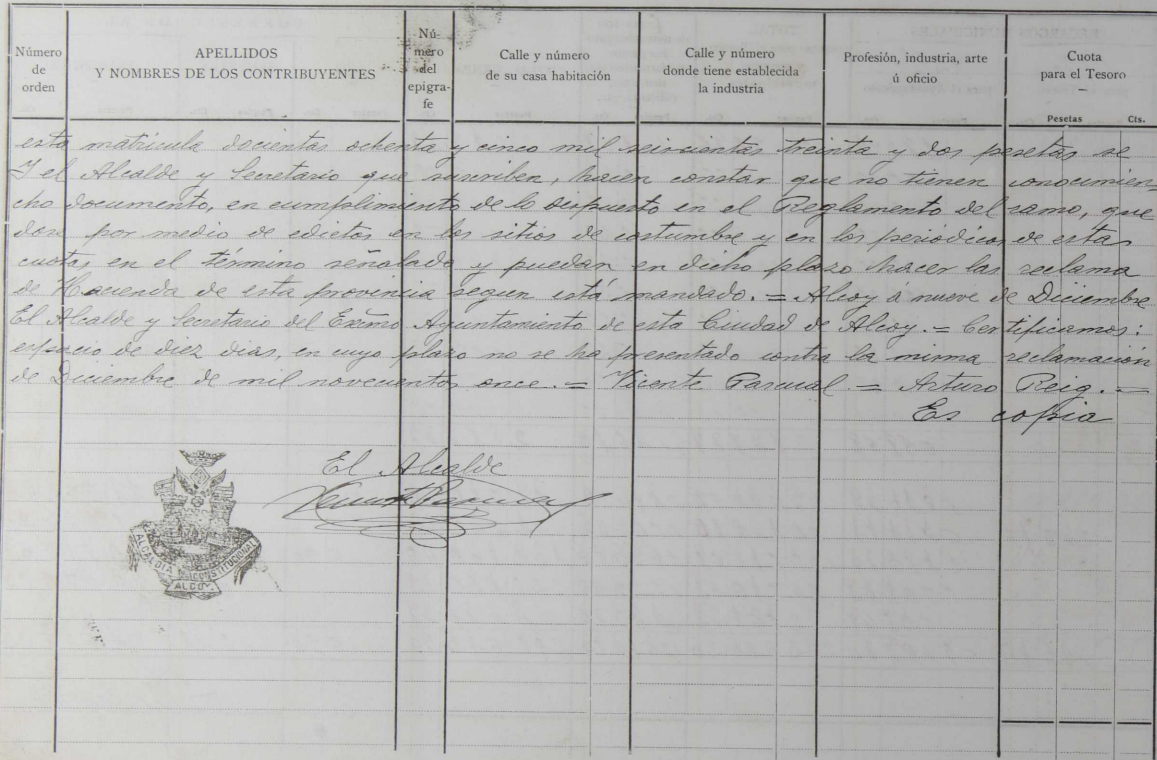 Número de orden
APELLIDOS Y NOMBRES DE LOS CONTRIBUYENTES
Nú- mero del epigra- fe
Calle y número de su casa habitación
Calle y número donde tiene establecida la industria
Profesión, industria, arte ú oficio
Cuota para el Tesoro
Pesetas Cts.
esta matricula docientas ochenta y cinco mil seiscientas treinta y dos pesetas se
Y el Alcalde y Secretario que suscriben, hacen constar que no tienen conocimien=
cho documento, en cumplimiento de lo dispuesto en el Reglamento del ramo, que
dose por medio de edictos en los sitios de costumbre y en los periódicos de esta
cuotas en el término señalado y puedan en dicho plazo hacer las reclama
de Hacienda de esta provincia segun está mandado. = Alcoy á nueve de Diciembre
El Alcalde y Secretario del Exímo Ayuntamiento de esta Ciudad de Alcoy. = Certificamos:
espacio de diez dias, en cuyo plazo no se ha presentado contra la misma reclamación
de Diciembre de mil novecientos once. = Vicente Pascual = Arturo Reig. =
Es copia
El Alcalde
ALCALDIA CONSTITUCIONAL
ALCOY